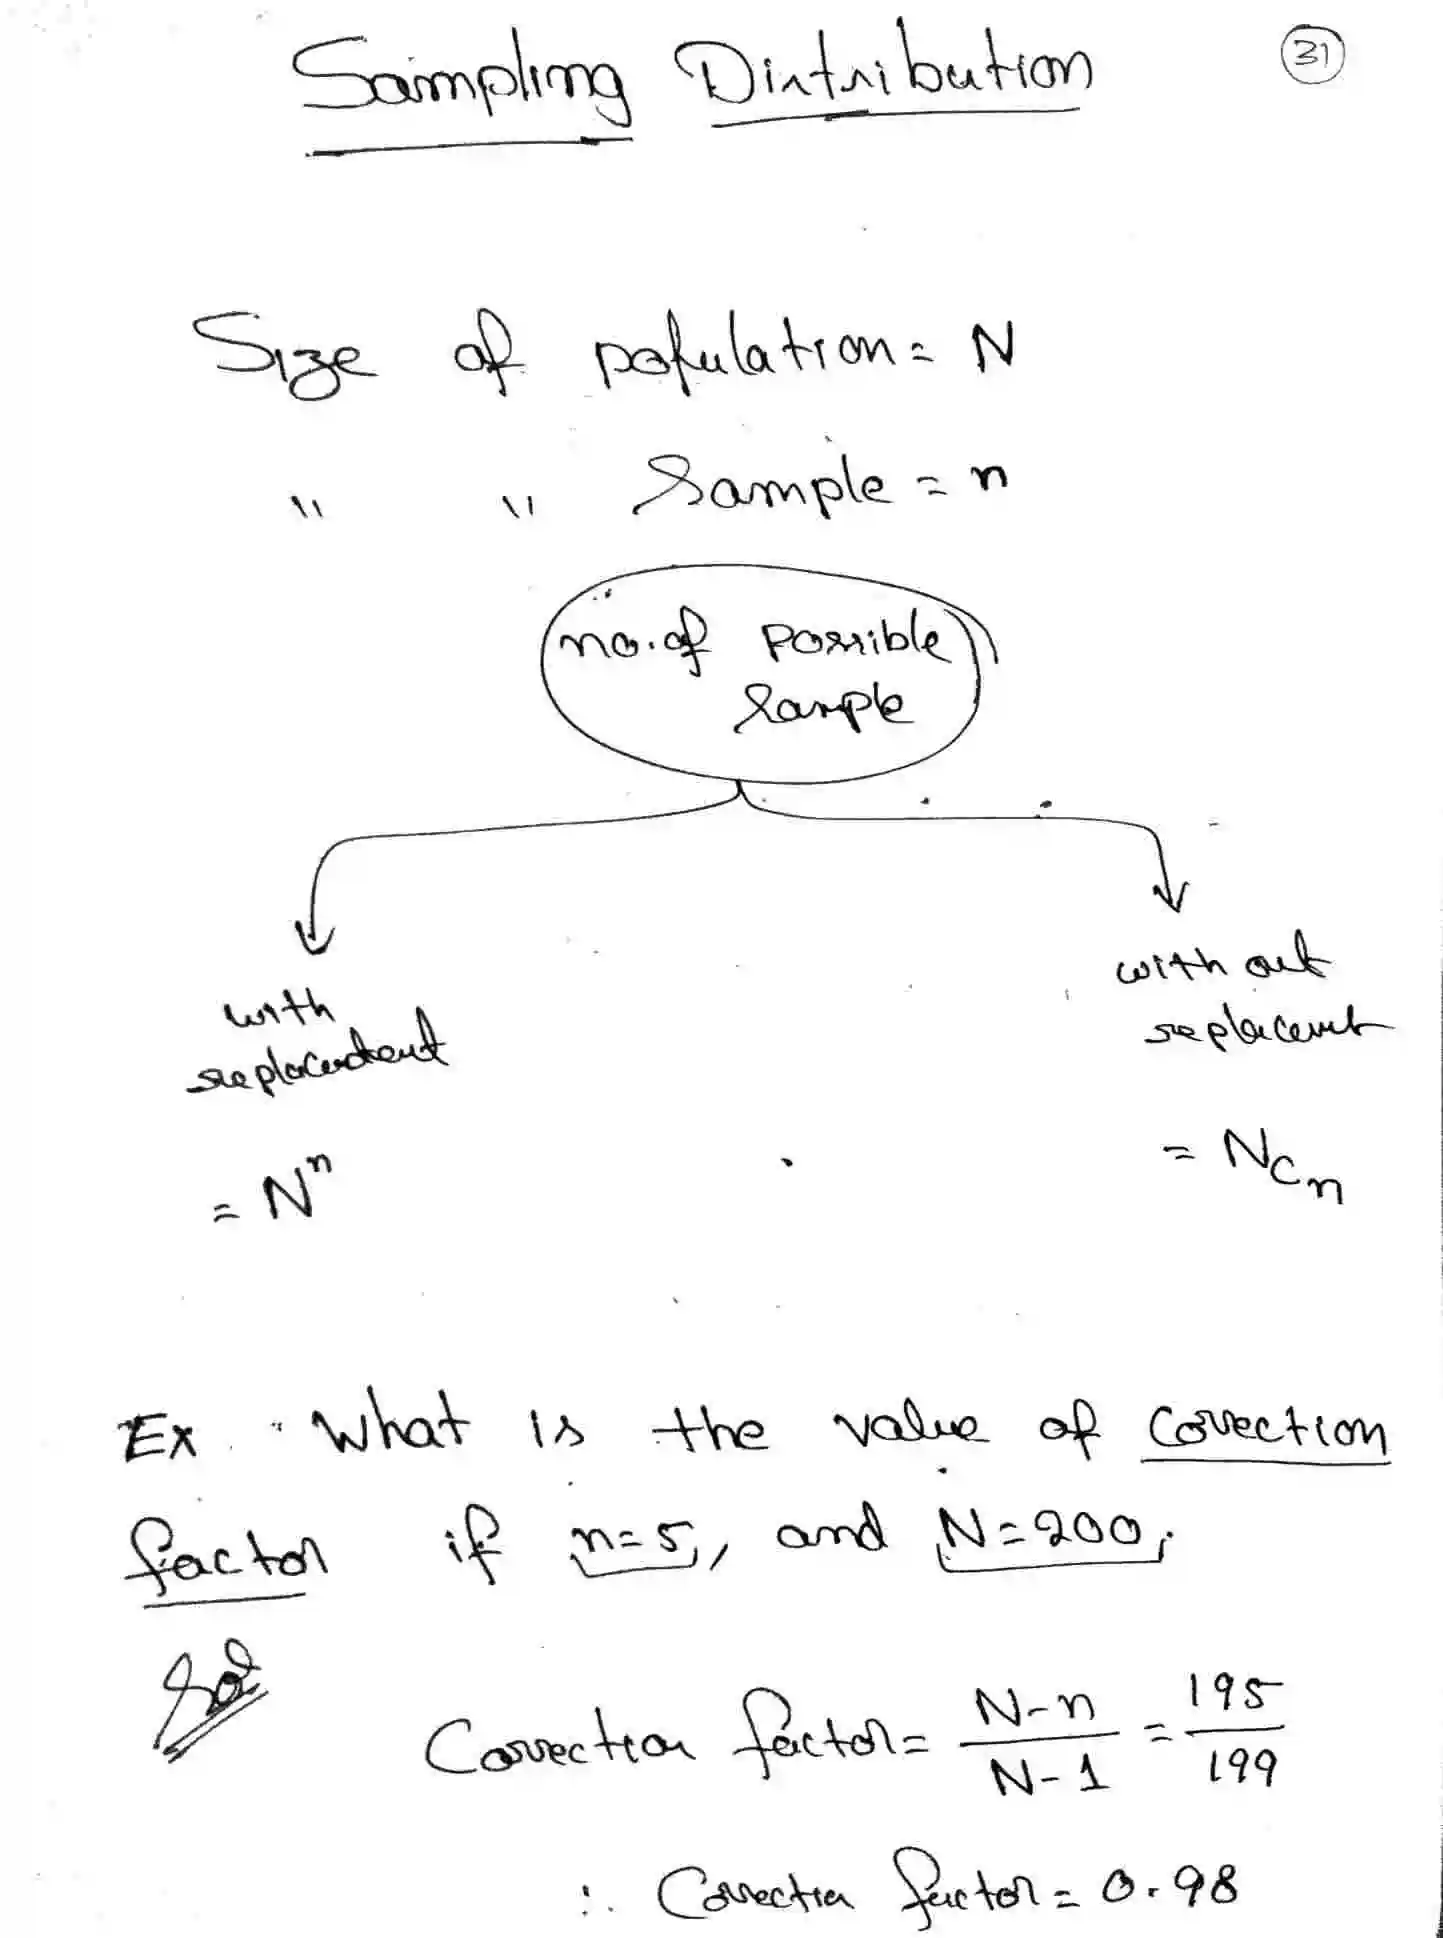 Sampling Distribution
31
Size of population = N
" " Sample = n
no. of possible
sample
with
replacement
with out
replacement
= Nⁿ
= NCn
Ex. What is the value of correction
factor if n=5, and N=200,
Sol
Correction factor = N-n / N-1 = 195 / 199
∴ Correction factor = 0.98